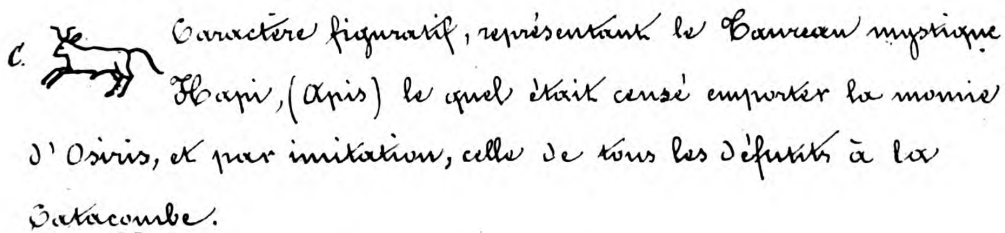 C. Caractère figuratif, représentant le Taureau mystique
Hapi, (Apis) le quel était censé emporter la momie
d'Osiris, et par imitation, celle de tous les défunts à la
Catacombe.